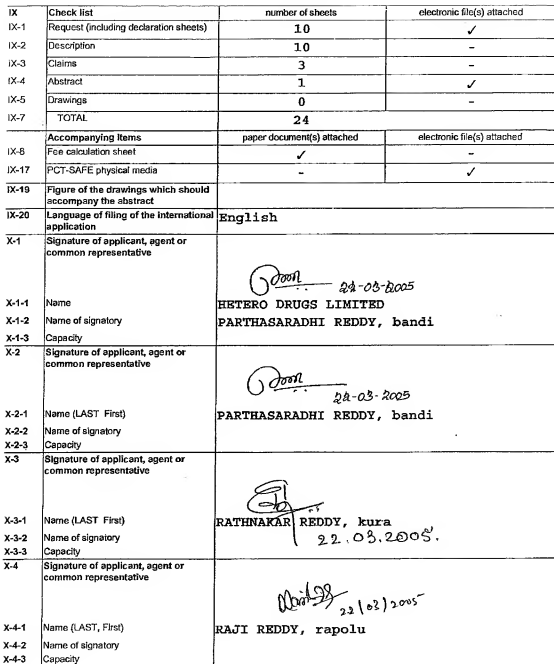 IX Check list number of sheets electronic file(s) attached
IX-1 Request (including declaration sheets) 10 ✓
IX-2 Description 10 -
IX-3 Claims 3 -
IX-4 Abstract 1 ✓
IX-5 Drawings 0 -
IX-7 TOTAL 24
Accompanying Items paper document(s) attached electronic file(s) attached
IX-8 Fee calculation sheet ✓ -
IX-17 PCT-SAFE physical media - ✓
IX-19 Figure of the drawings which should
accompany the abstract
IX-20 Language of filing of the international English
application
X-1 Signature of applicant, agent or
common representative
22-03-2005
X-1-1 Name HETERO DRUGS LIMITED
X-1-2 Name of signatory PARTHASARADHI REDDY, bandi
X-1-3 Capacity
X-2 Signature of applicant, agent or
common representative
22-03-2005
X-2-1 Name (LAST First) PARTHASARADHI REDDY, bandi
X-2-2 Name of signatory
X-2-3 Capacity
X-3 Signature of applicant, agent or
common representative
X-3-1 Name (LAST First) RATHNAKAR REDDY, kura
X-3-2 Name of signatory 22.03.2005.
X-3-3 Capacity
X-4 Signature of applicant, agent or
common representative
22/03/2005
X-4-1 Name (LAST, First) RAJI REDDY, rapolu
X-4-2 Name of signatory
X-4-3 Capacity